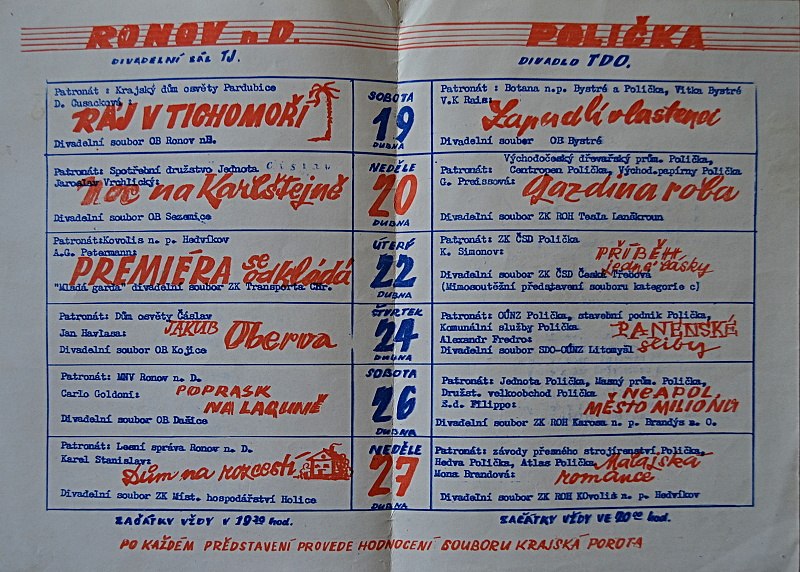 RONOV n D.
DIVADELNÍ SÁL TJ.
Patronát: Krajský dům osvěty Pardubice
D. Cusacková :
RÁJ V TICHOMOŘÍ
Divadelní soubor OB Ronov nD.
Patronát: Spotřební družstvo Jednota
Jaroslav Vrchlický:
Noc na Karlštejně
Divadelní soubor OB Sezemice
Patronát:Kovolis n. p. Hedvíkov
A.G. Petermann:
PREMIÉRA se
odkládá
"Mladá garda" divadelní soubor ZK Transporta Chr.
Patronát: Dům osvěty Čáslav
Jan Havlasa:
JAKUB Oberva
Divadelní soubor OB Kojice
Patronát: MNV Ronov n. D.
Carlo Goldoni:
POPRASK
NA LAGUNĚ
Divadelní soubor OB Dašice
Patronát: Lesní správa Ronov n. D.
Karel Stanislav:
Dům na rozcestí
Divadelní soubor ZK Míst. hospodářství Holice
ZAČÁTKY VŽDY V 19 hod.
SOBOTA
19
DUBNA
NEDĚLE
20
DUBNA
ÚTERÝ
22
DUBNA
ČTVRTEK
24
DUBNA
SOBOTA
26
DUBNA
NEDĚLE
27
DUBNA
POLIČKA
DIVADLO TDO.
Patronát : Botana n.p. Bystré a Polička, Vitka Bystré
V.K Rais:
Zapadlí vlastenci
Divadelní soubor OB Bystré
Východočeský dřevařský prům. Polička,
Patronát: Centropen Polička, Východ.papírny Polička
G. Preissová:
Gazdina roba
Divadelní soubor ZK ROH Tesla Lanškroun
Patronát: ZK ČSD Polička
K. Simonov:
PŘÍBĚH
jedné lásky
Divadelní soubor ZK ČSD Česká Třebová
(Mimosoutěžní představení souboru kategorie c)
Patronát: OÚNZ Polička, stavební podnik Polička,
Komunální služby Polička
Alexandr Fredro:
PANENSKÉ
sliby
Divadelní soubor SDO-OÚNZ Litomyšl
Patronát: Jednota Polička, Masný prům. Polička,
Družst. velkoobchod Polička
E.d. Filippo:
NEAPOL
MĚSTO MILIONŮ
Divadelní soubor ZK ROH Karosa n. p. Brandýs n. O.
Patronát: závody přesného strojírenství Polička,
Hedva Polička, Atlas Polička
Mona Brandová:
Malajská
romance
Divadelní soubor ZK ROH KOvolis n. p. Hedvíkov
ZAČÁTKY VŽDY VE 20⁰⁰ hod.
PO KAŽDÉM PŘEDSTAVENÍ PROVEDE HODNOCENÍ SOUBORU KRAJSKÁ POROTA